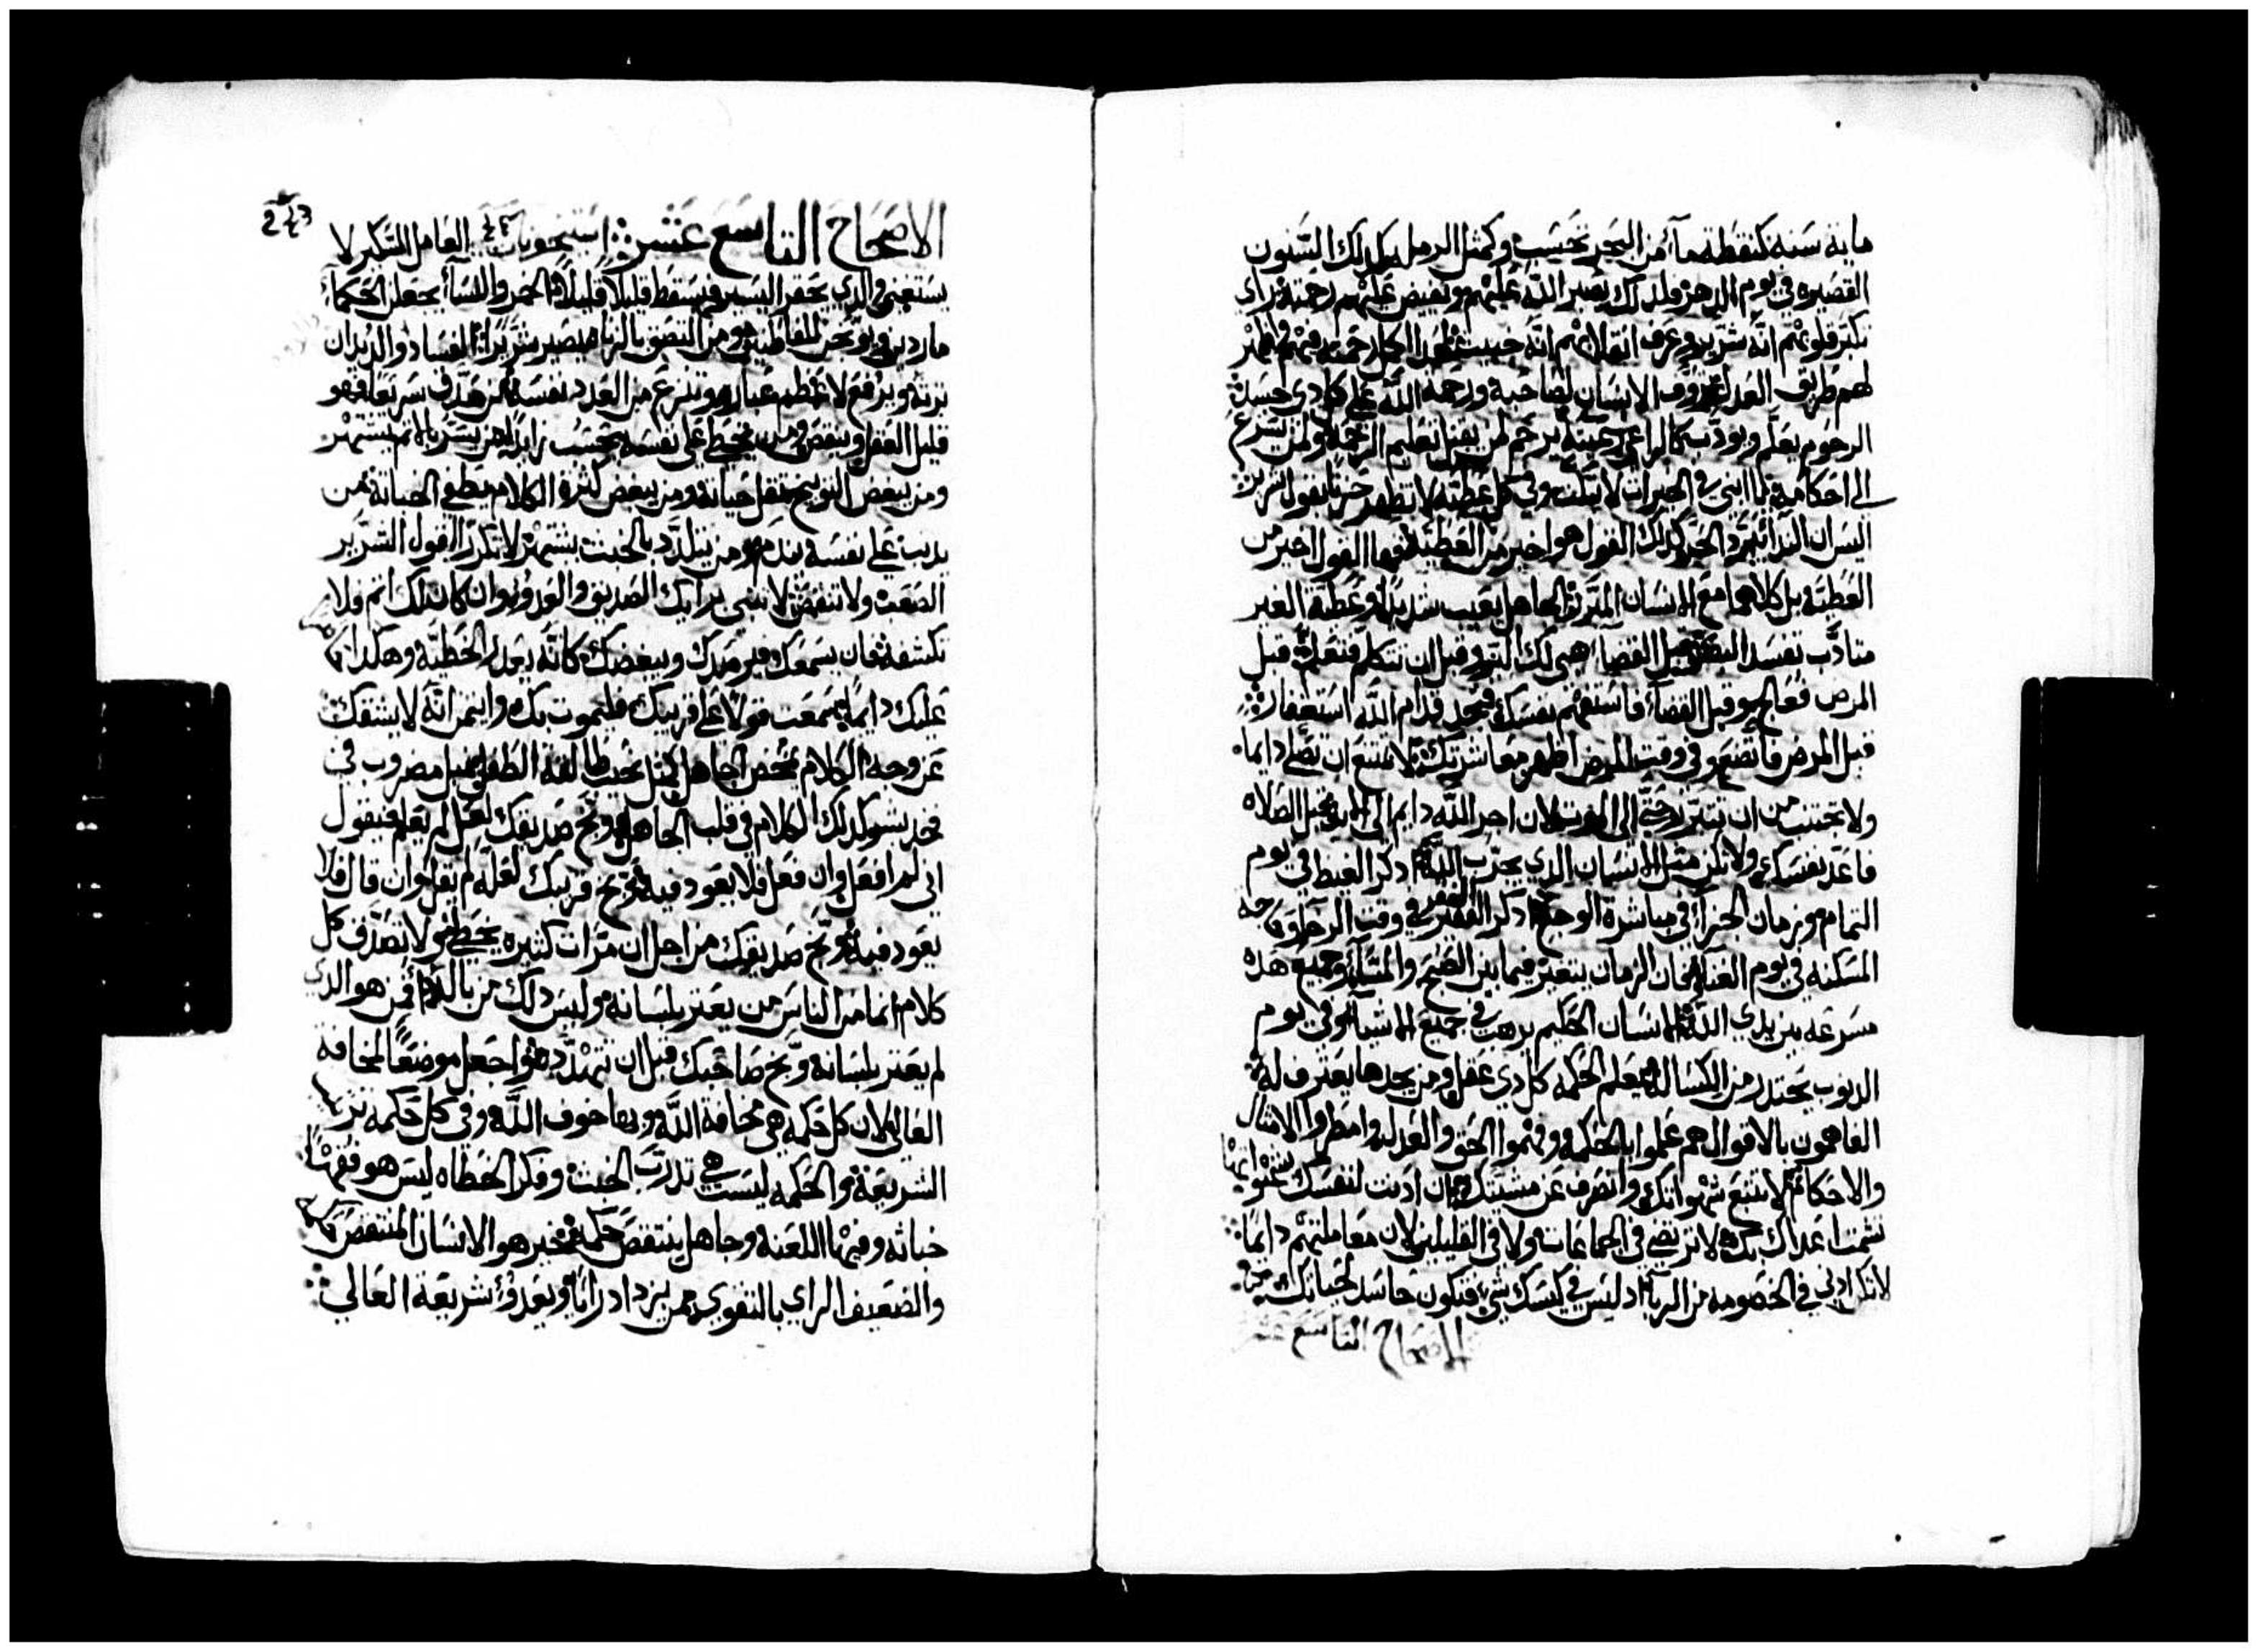 ماية سنه كنقطة مآء من البحر تحسب وكمثل الرمل كذلك السنون
القصيره في يوم الدهر فلذلك يصبر الله عليهم ويفيض عليهم رحمته راي
تكبر قلوبهم انه شرير وعرف انقلابهم انه خبيث اكمل رحمته فيهم واظهر
لهم طريق العدل رووف الانسان لصاحبه ورحمة الله على كل ذي جسد
الرحوم يعلم ويودب كالراعي رعيته يرحم لمن يقبل تعليم الرحمة ولمن يسرع
الى احكامه يا ابني في الخيرات لا تبكت وفي كل عطيه لا تظهر حزنا بقول شرير
اليس ان الندا يبرد الحر كذلك القول هو اخير من العطية فها القول اخير من
العطية بل كلاهما مع الانسان المتبرر الجاهل يعيب شديدا وعطية الغير
متادب تفسد البصر قبل القضا هيى لك البر وقبل ان تتكلم فتعلم قبل
المرض فعالج وقبل القضآء فاستفهم نفسك فتجد قدام الله استغفارا
قبل المرض فاتضع وفي وقت المرض اظهر معاشرتك لا تمتنع ان تصلي دايما
ولا تجتنب من ان تتبرر حتى الى الموت لان اجر الله دايم الى الابد قبل الصلاه
فاعد نفسك ولا تكن مثل الانسان الذي يجرب الله اذكر الغيظ في يوم
التمام وزمان الجزآ في مباشرة الوجه اذكر الفقر في وقت الرخا وحاجة
المسكنه في يوم الغنا فان الزمان يتغير فيما بين الصبح والمسآء وجميع هذه
مسرعه بين يدي الله الانسان الحكيم يرهب في جميع الاشيآء وفي يوم
الذنوب يحتذر من الكسالة يتعلم الحكمه كل ذي عقل ومن يجدها يعترف له
الفاهمون بالاقوال هم عملوا بالحكمة وفهموا الحق والعدل وامطروا الامثال
والاحكام لا تتبع شهواتك وانصرف عن مشيتك فان اذنت لنفسك شهواتها
تشمت اعداك بك لا ترتضي في الجماعات ولا في القليلين لان معاملتهم دايما
لا تكن ادني في الخصومه من الربآ اذ ليس في كيسك شي فتكون حاسد لحياتك
الاصحاح التاسع عشر
243
الاصحاح التاسع عشر العامل السكير لا
يستغني والذي يحقر اليسير فيسقط قليلا قليلا الخمر والنسآ يجعلن الحكمآ
ماردين ويوبخن الفاهمين ومن التصق بالزناه يصير شريرا الفساد والديدان
ترثه ويرفع لاعظم عباره وتنزع من العدد نفسه من صدق سريعا فهو
قليل العقل وينقص ومن يخطي على نفسه يحسب زايدا من يسر بالاثم يشتهر
ومن يبغض التوبيخ تقل حياته ومن يبغض كثرة الكلام يطفي الخباثة من
يذنب على نفسه يندم ومن يتلذذ بالخبث يشتهر لا تكرر القول الشرير
الصعب ولا تنقص لا تنبي برايك الصديق والعدو وان كان لك اثم فلا
تكشفه فان يسمعك فيرصدك ويبغضك كانه يعذر الخطية وهكذا
عليك دايما سمعت قولا على قريبك فليموت بك واتمن انه لا يشقك
عن وجه الكلام يمخض الجاهل كمثل نحيب طالقة الطفل نبل مضروب في
فخد بشر كذلك الكلام في قلب الجاهل وبخ صديقك لعل لم يعلم فيقول
اني لم افعل وان فعل فلا يعود فيه وبخ قريبك لعله لم يقل وان قال فلا
يعود فيه وبخ صديقك من اجل ان مرات كثيره يخطى ولا تصدق كل
كلام انما من الناس من يعثر بلسانه وليس ذلك من باله فمن هو الذي
لم يعثر بلسانه وبخ صاحبك قبل ان تتهدده واجعل موضعا لمخافة
العالي لان كل حكمه هي مخافة الله وبها خوف الله وفي كل حكمه
الشريعة والحكمه ليست هي تدرب الخبث وفكر الخطاه ليس هو فهمها
خباثه وفيها اللعنه وجاهل ينتقص حكمه فخير هو الانسان المنتقص
والضعيف الراي بالتقوي ممن يزداد رايا ويعدو شريعة العالي